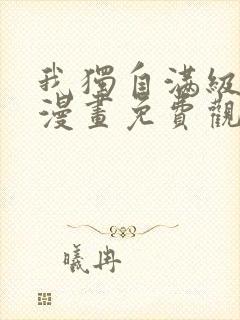 我獨自滿級
漫畫免費觀
曦冉